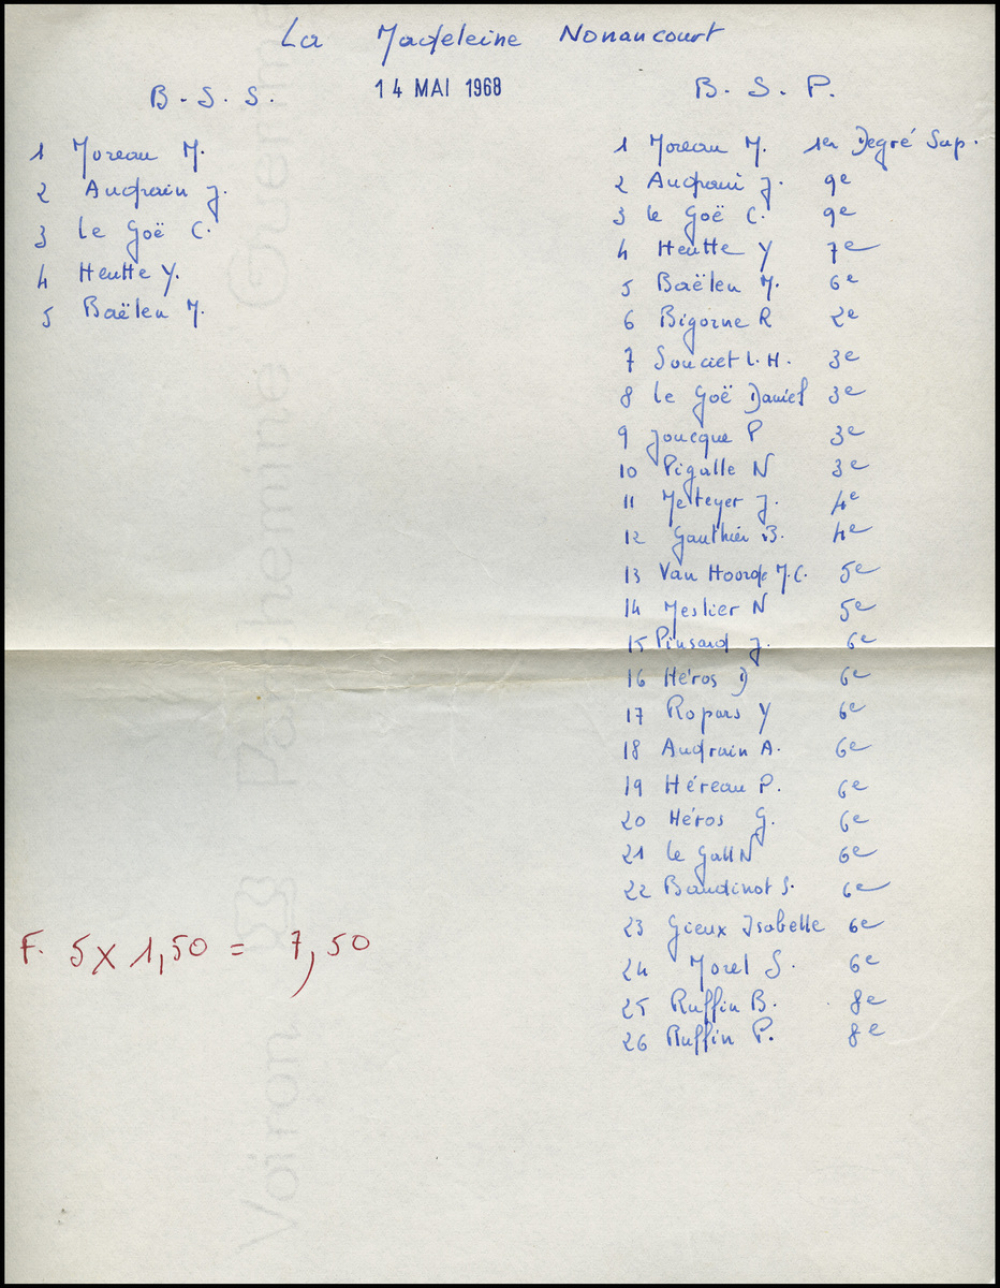 La Madeleine Nonancourt
14 MAI 1968
B. S. S.
1 Moreau M.
2 Audrain J.
3 Le Goë C.
4 Heutte Y.
5 Baëlen M.
B. S. P.
1 Moreau M. 1er Degré Sup.
2 Audrain J. 9e
3 Le Goë C. 9e
4 Heutte Y 7e
5 Baëlen M. 6e
6 Bigorne R 2e
7 Souciet L. H. 3e
8 Le Goë Daniel 3e
9 Joucque P 3e
10 Pigalle N 3e
11 J. 4e
12 Gauthier B. 4e
13 Van Hoorde M.C. 5e
14 Meslier N 5e
15 Pinsard J. 6e
16 Héros D 6e
17 Ropars Y 6e
18 Audrain A. 6e
19 Héreau P. 6e
20 Héros G. 6e
21 Le Gall N 6e
22 Baudinot S. 6e
23 Gieux Isabelle 6e
24 Morel S. 6e
25 Ruffin B. 8e
26 Ruffin P. 8e
F. 5 x 1,50 = 7,50
Voiron